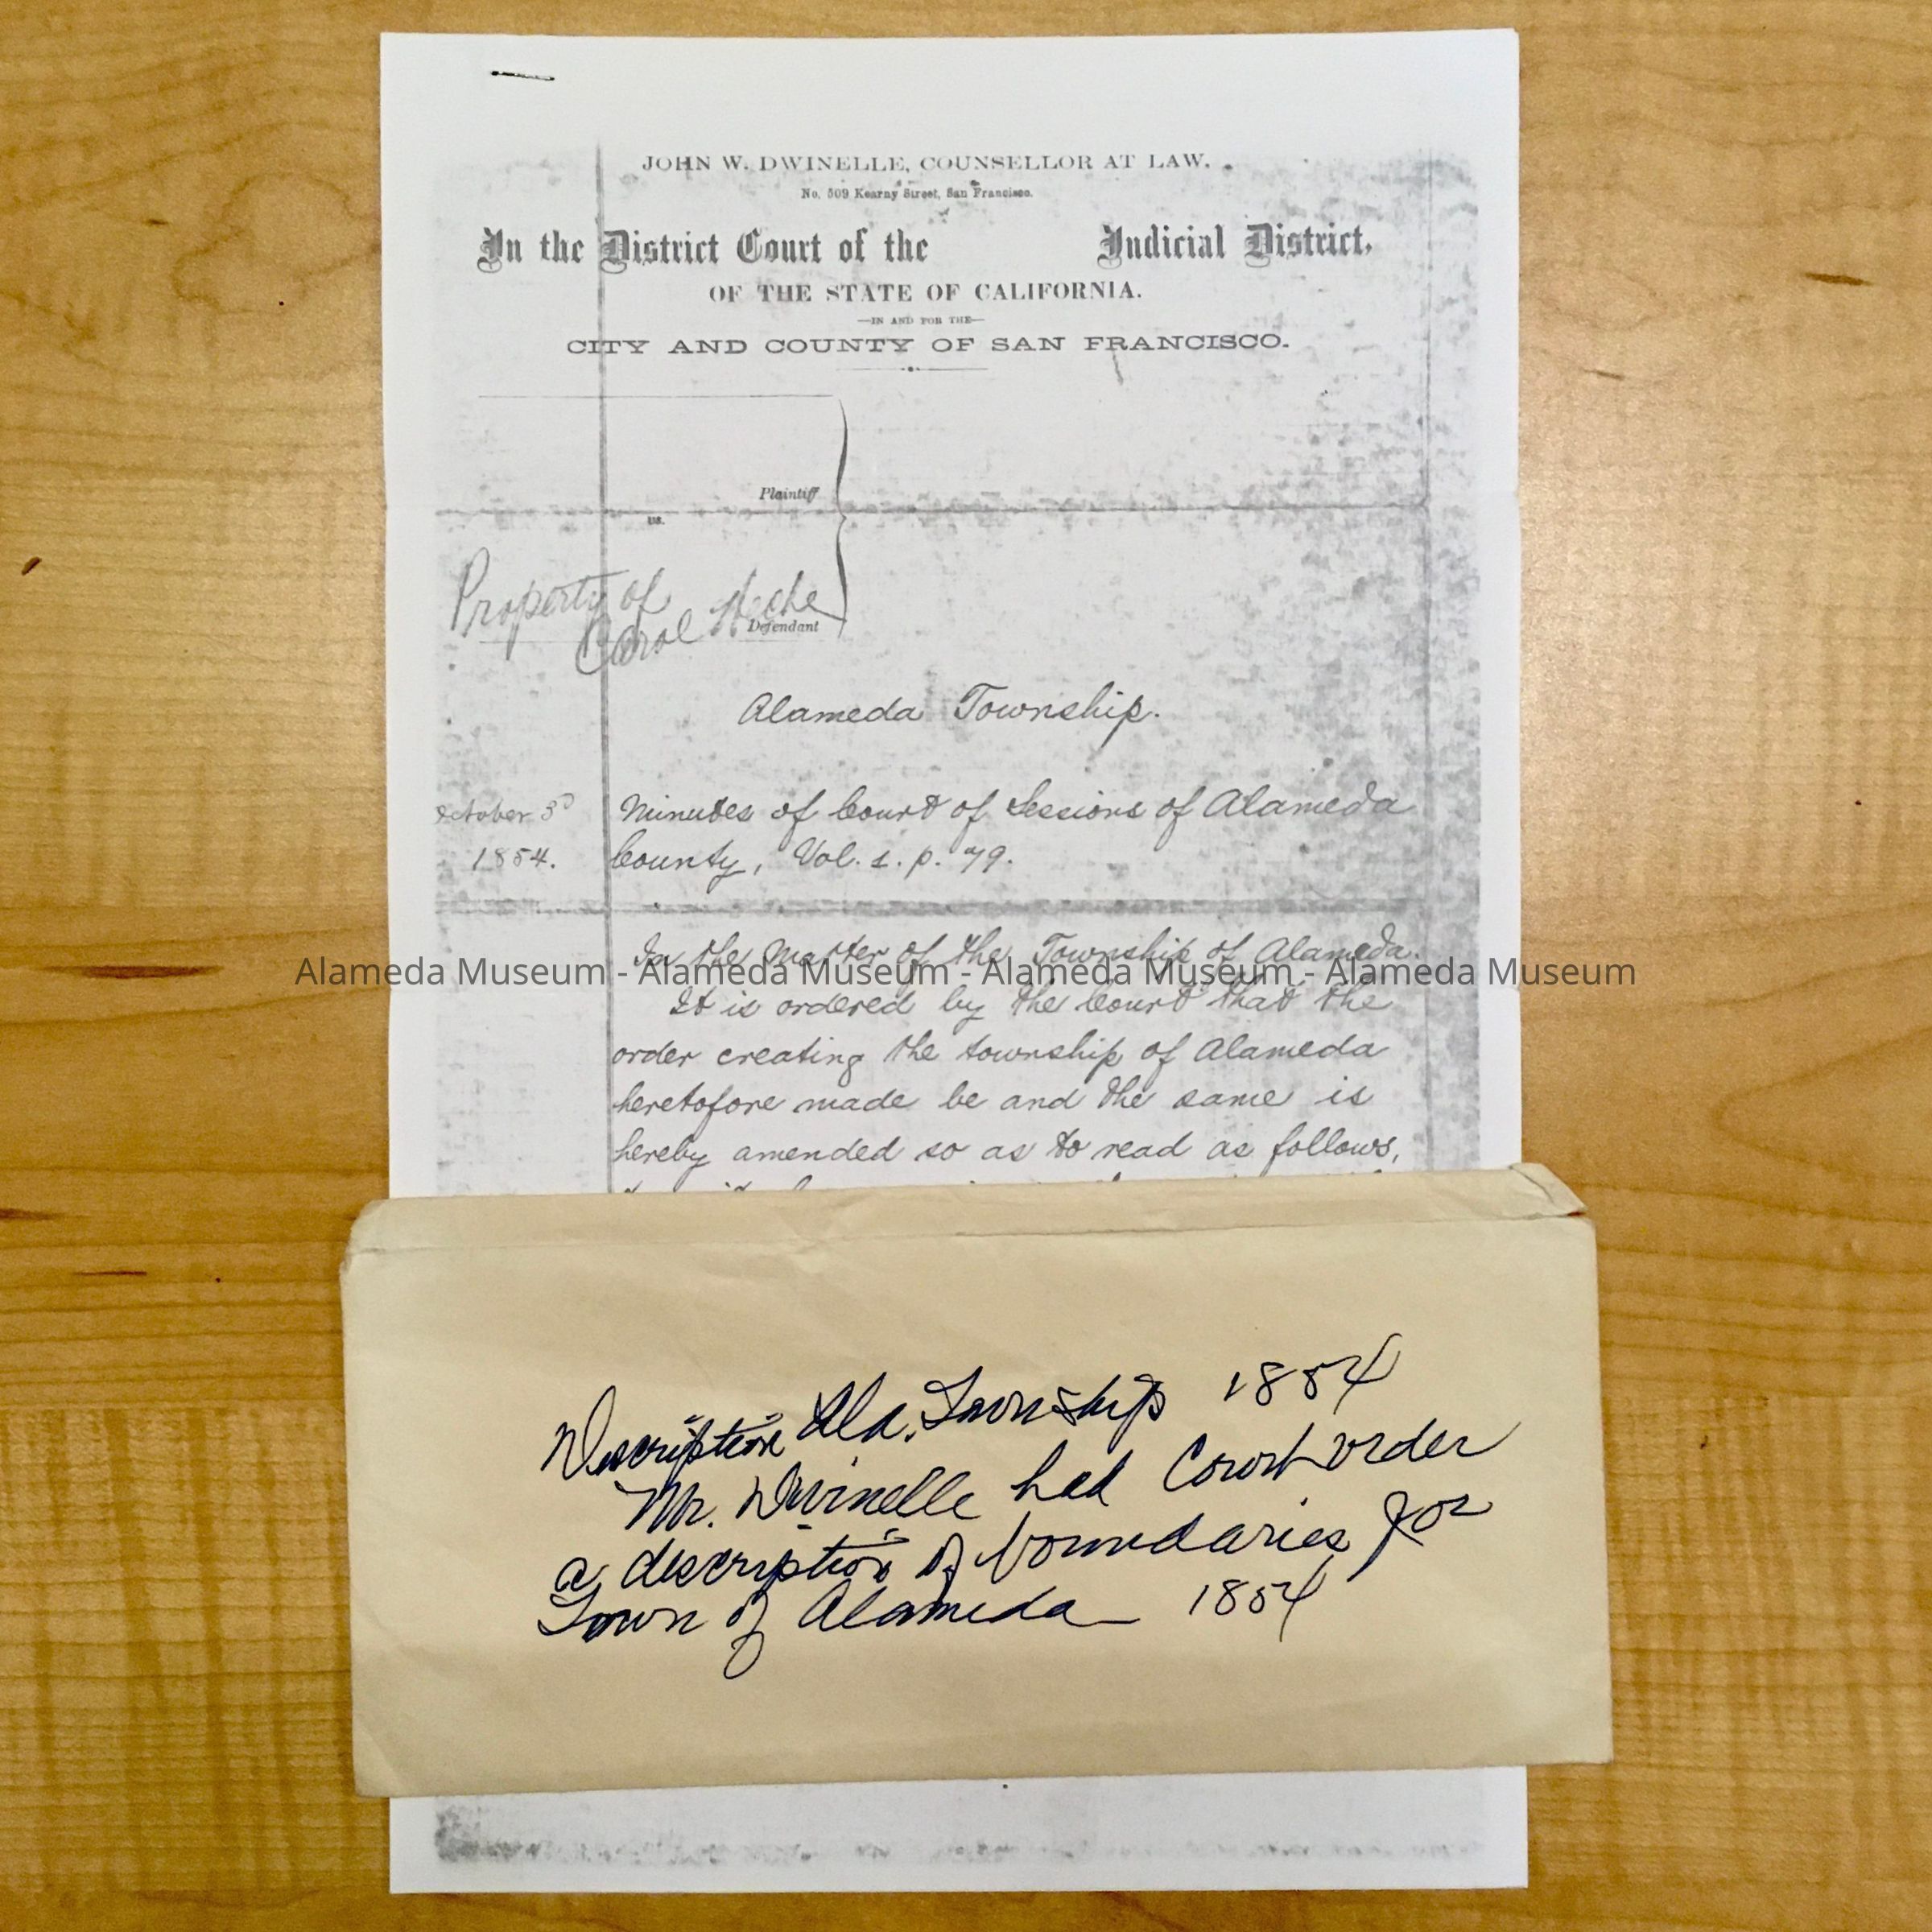 JOHN W. DWINELLE, COUNSELLOR AT LAW.
No. 509 Kearny Street, San Francisco.
In the District Court of the Judicial District,
OF THE STATE OF CALIFORNIA.
—IN AND FOR THE—
CITY AND COUNTY OF SAN FRANCISCO.
Plaintiff
vs.
Property of
Carol Heche
Defendant
Alameda Township.
October 3d
1854.
Minutes of Court of Sessions of Alameda
County, Vol. 1. p. 79.
In the Matter of the Township of Alameda.
Alameda Museum - Alameda Museum - Alameda Museum - Alameda Museum
It is ordered by the Court that the
order creating the township of Alameda
heretofore made be and the same is
hereby amended so as to read as follows,
Description Ala. Township 1854
Mr. Dwinelle had Court order
a description of boundaries for
Town of Alameda 1854